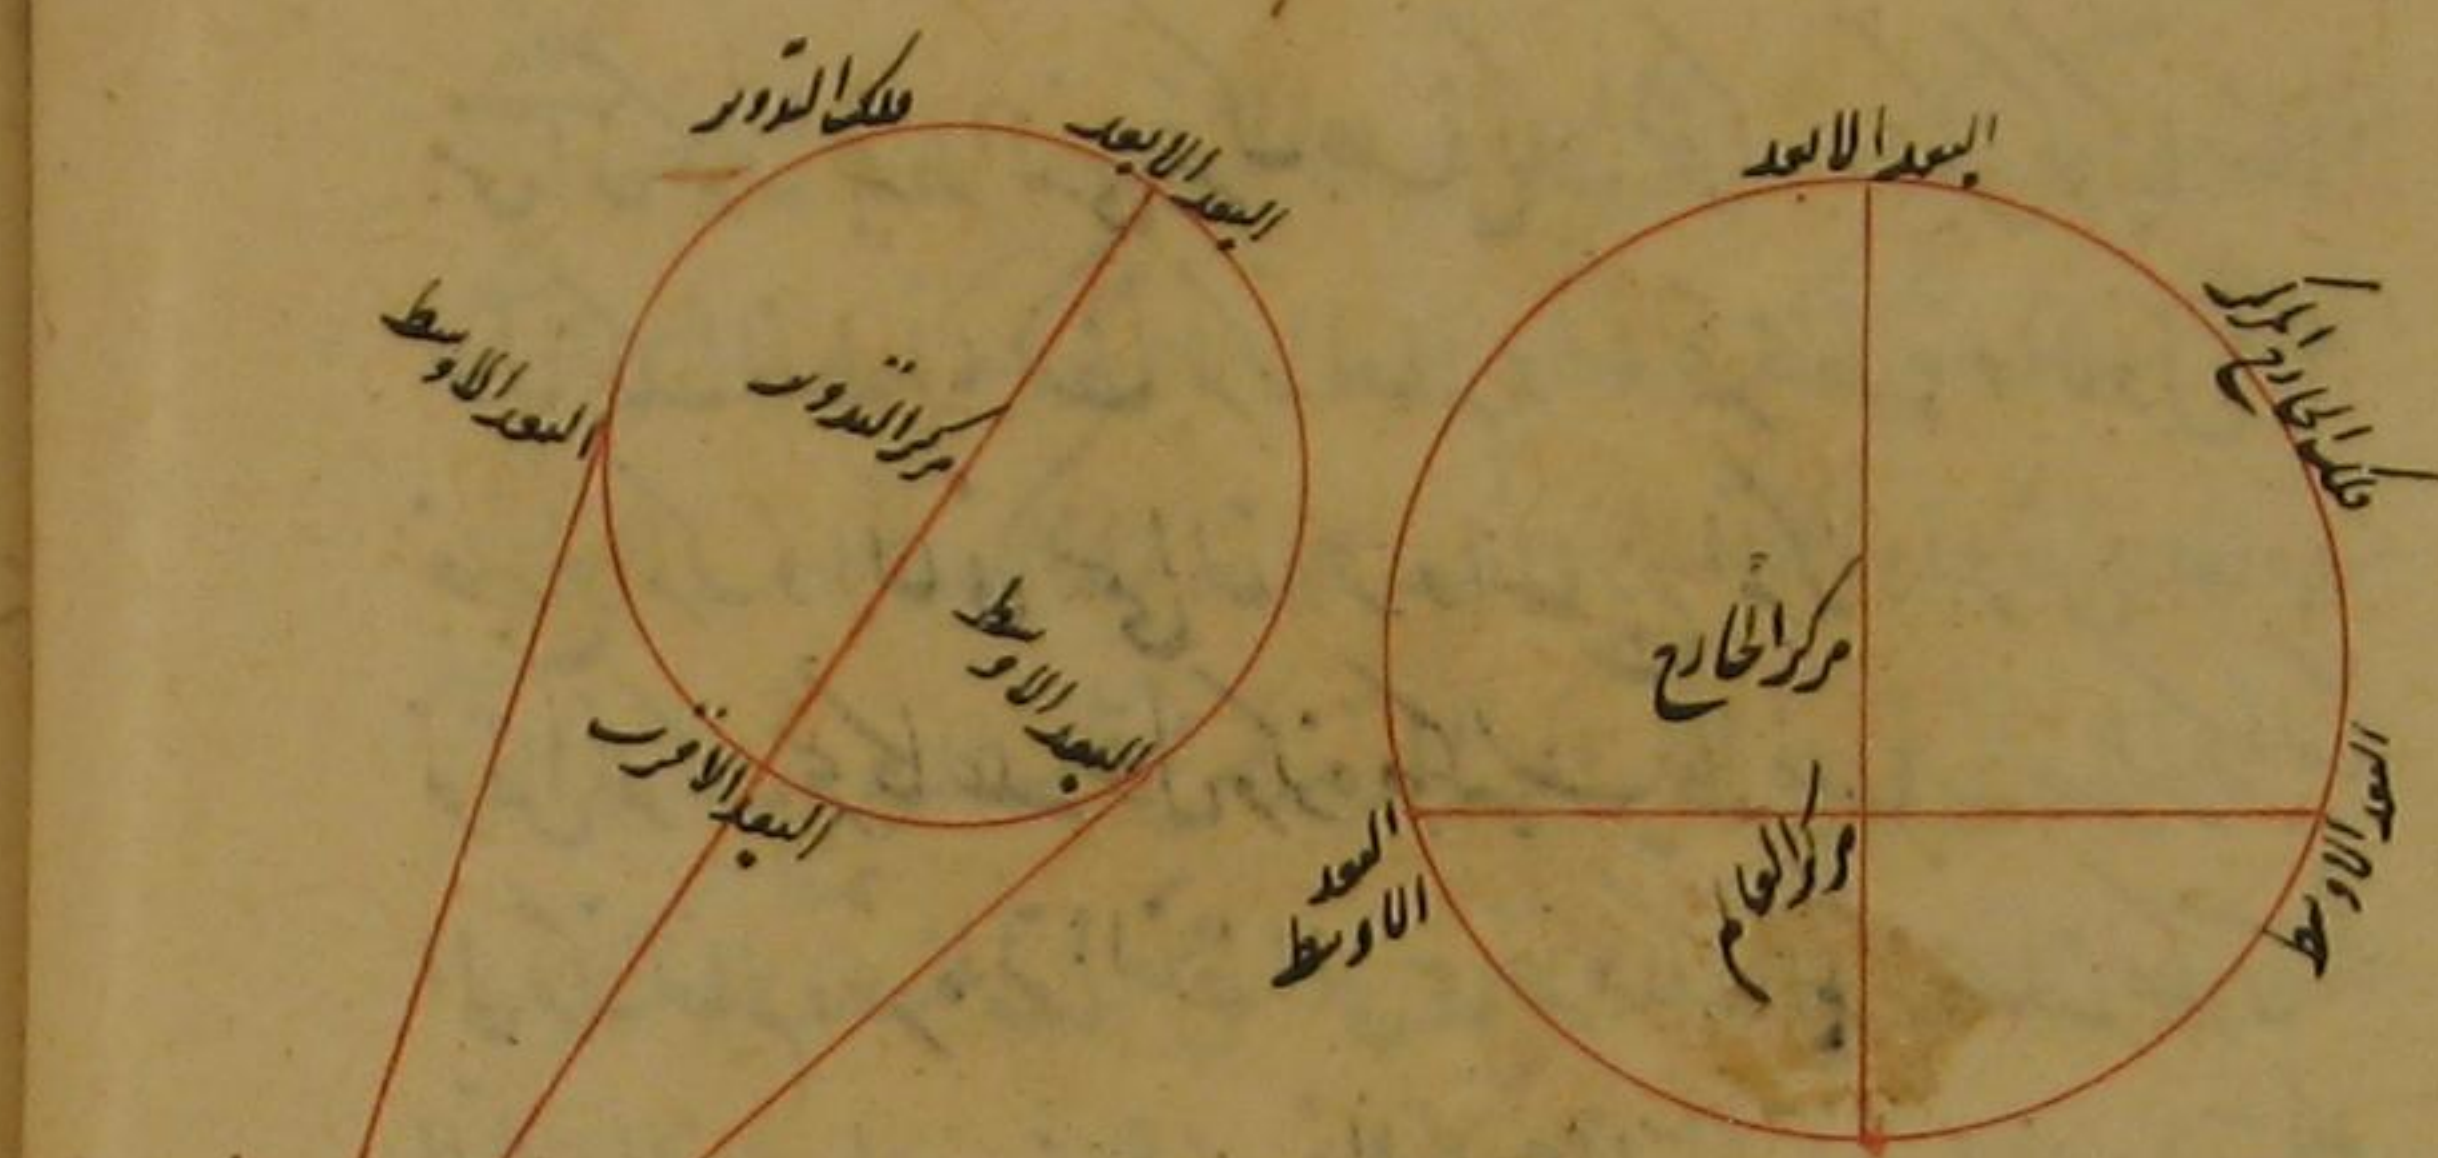 البعد الابعد
فلك الخارج المركز
مركز الخارج
مركز العالم
البعد الاوسط
البعد
الاوسط
فلك التدوير
البعد الابعد
البعد الاوسط
مركز التدوير
البعد الاوسط
البعد الاقرب